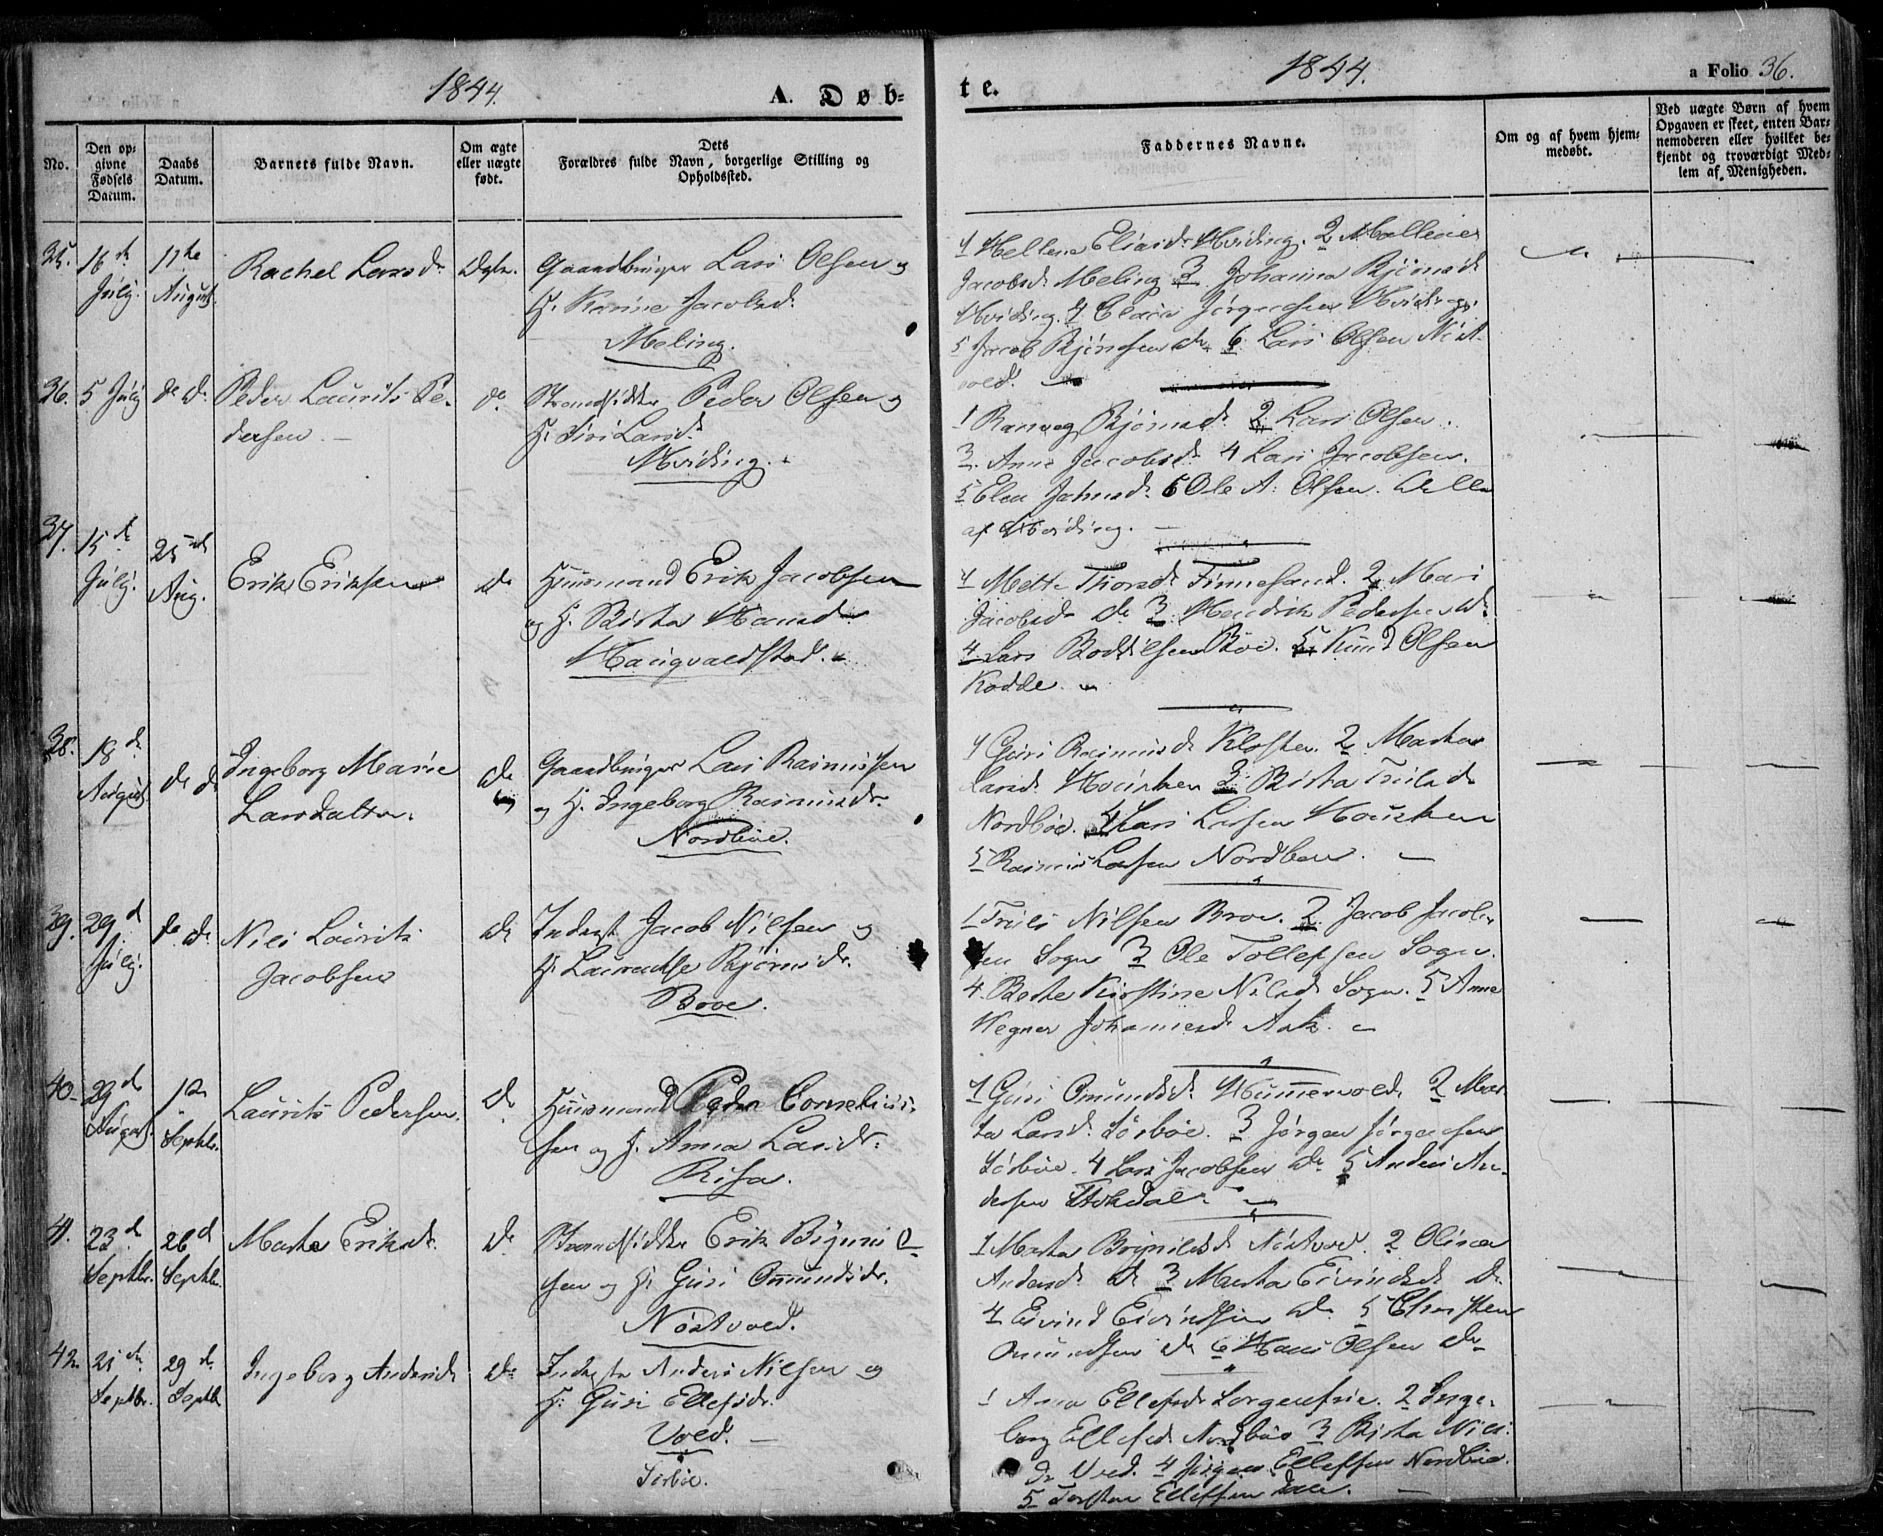 1844.
A. Døb=
No.
Den op=
givne
Fødsels
Datum.
Daabs
Datum.
Barnets fulde Navn.
Om ægte
eller uægte
født.
Dets
Forældres fulde Navn, borgerlige Stilling og
Opholdssted.
35.
16de
Julij.
11te
August.
Rachel Larsd.
Ægte.
Gaardbruger Lars Olsen og
H. Karine Jacobsd.
Meling.
36.
5 Julij
do do
Peder Laurits Pe-
dersen.
do
Strandsidder Peder Olsen og
H. Siri Larsd.
Hviding.
37.
15de
Julij.
25de
Aug.
Erik Eriksen
do
Huusmand Erik Jacobsen
og H. Birtha Hansd.
Haugvaldstad.
38.
18de
August
do do
Ingeborg Marie
Larsdatter.
do
Gaardbruger Lars Rasmussen
og H. Ingeborg Rasmusdr.
Nordbøe.
39.
29d
Julij.
do do
Nils Laurits
Jacobsen
do
Inderst Jacob Nilsen og
H. Laurentse Bjørnsdr.
Broe.
40.
29de
August.
Septbr.
Laurits Pedersen.
do
Huusmand Peder Cornelius-
sen og H. Anna Larsdr.
Risa.
41.
23de
Septbr.
26d
Septbr.
Martha Eriksd.
do
Strandsidder Erik
sen og H. Guri Omundsdr.
Nøstvold.
42.
21de
Septbr.
29de
Septbr
Ingeborg Andersd.
do
Inderste Anders Nilsen og
H. Guri Ellefsdr.
Vold.
Sørbøe.
te.
1844.
a Folio 36.
Faddernes Navne.
Om og af hvem hjem=
medøbt.
Ved uægte Børn af hvem
Opgaven er skeet, enten Bar=
nemoderen eller hvilket be=
kjendt og troværdigt Med=
lem af Menigheden.
1 Hellene Eliasdr Hviding. 2 Mallene
Jacobsd. Meling 3 Johanna Bjørnsd
Hviding. 4 Elias Jørgensen Hviding.
5 Jacob Bjørnsen do 6 Lars Olsen Nøst-
vold.
1 Ranveg Bjørnsd. 2 Lars Olsen.
3. Anne Jacobsd. 4 Lars Jacobsen.
5 Elen Johnsd. 6 Ole A. Olsen. Alle
af Hviding.
1 Mette Thorsd. Finnesand. 2 Mari
Jacobsd do 3 Hendrik Pedersen do
4 Lars Boddelsen Bøe. 5 Knud Olsen
Kodde.
1 Guri Rasmusd. Kloster. 2 Martha
Larsd. Housken 3 Birtha Trulsd.
Nordbøe. 4 Lars Larsen Housken
5 Rasmus Larsen Nordbøe.
1 Truls Nilsen Broe. 2 Jacob Jacob-
sen Sogn 3 Ole Tollefsen Sogn.
4. Berte Kirstine Nilsd. Sogn. 5 Anne
Johannesd. Ask.
1 Guri Omundsd. 2 Mar-
ta Larsd. Sørbøe. 3 Jørgen Jørgensen
Sørbøe. 4 Lars Jacobsen do 5 Anders An-
dersen
1 Martha Nøstvold. 2 Olina
Andersd. do 3 Martha Eivindsd. do
4 Eivind Eivindsen do 5 Christen
Omundsen do 6 Hans Olsen do
1 Anna Ellefsd. Sorgenfrie. 2 Inge-
borg Ellefsd. Nordbøe 3 Birtha Nils-
dr Vold. 4 Jørgen Ellefsen Nordbøe.
5 Torsten Ellefsen